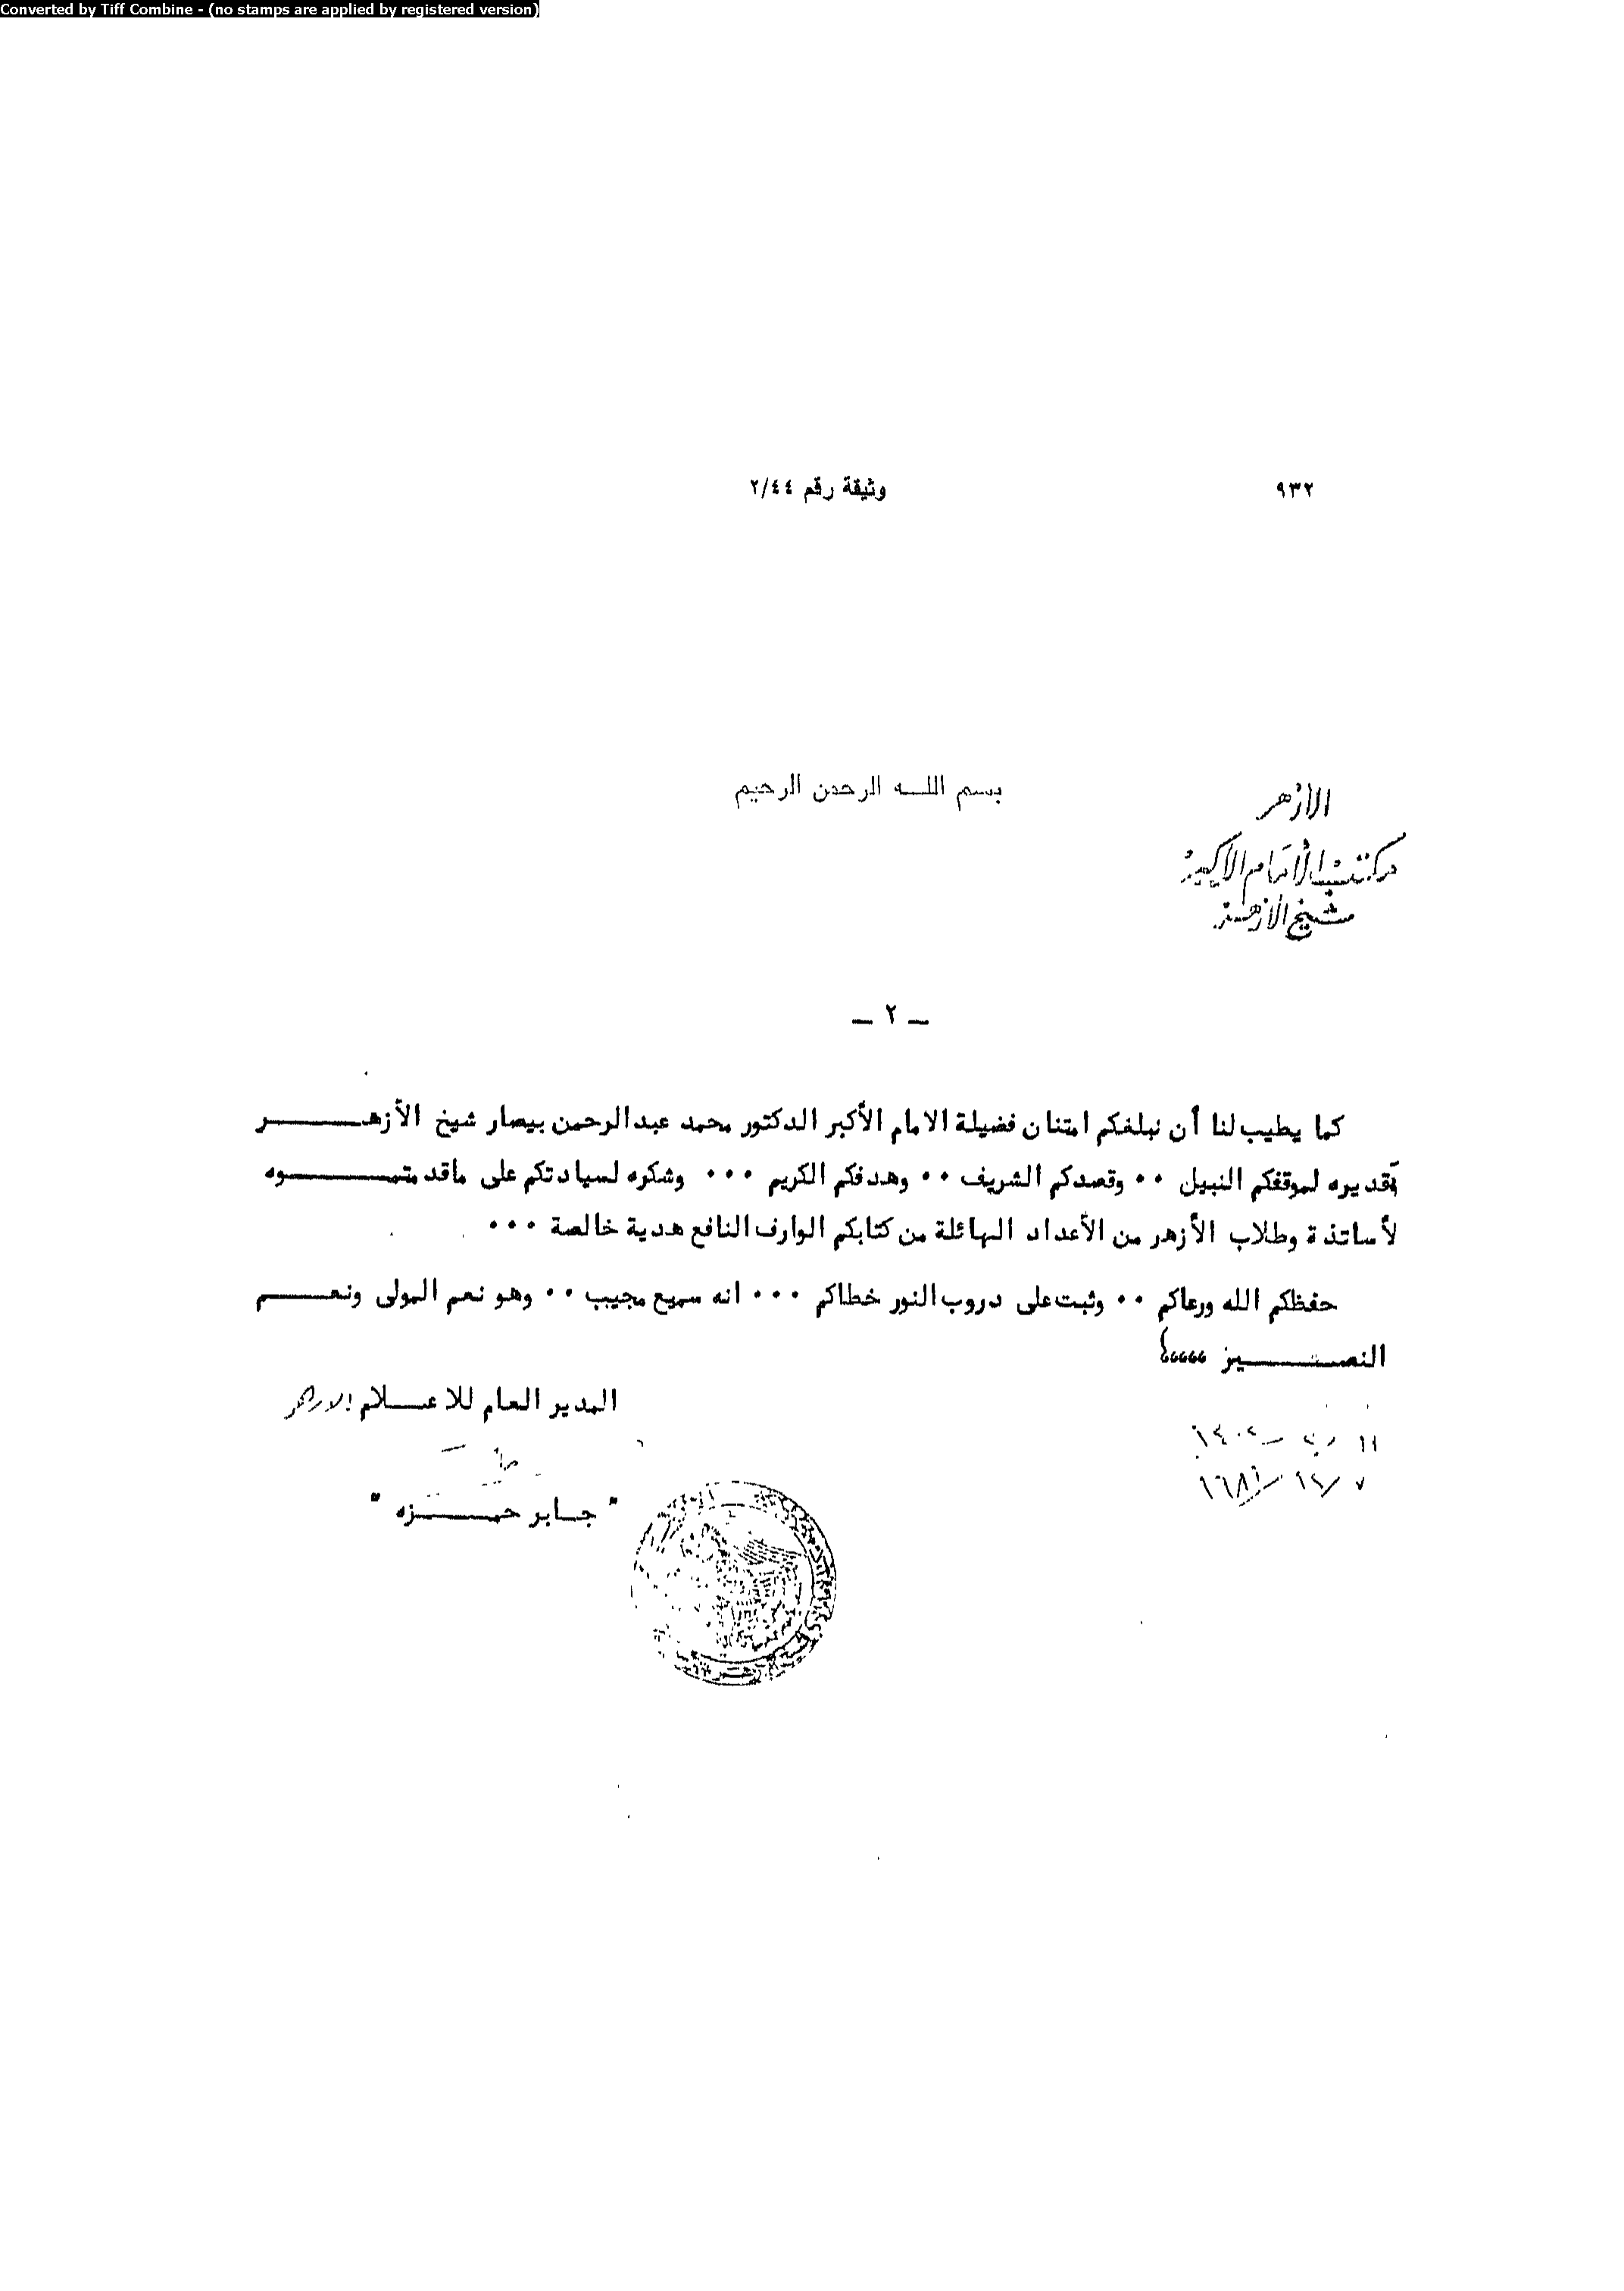 Converted by Tiff Combine - (no stamps are applied by registered version)
٩٣٢
وثيقة رقم ٢/٤٤
بسم اللـــه الرحمن الرحيم
الأزهر
مكتب الأمام الأكبر
شيخ الأزهر
ـ ٢ ـ
كما يطيب لنا أن نبلغكم امتنان فضيلة الامام الأكبر الدكتور محمد عبدالرحمن بيصار شيخ الأزهـــــــــر
وتقديره لموقفكم النبيل ٠٠ وقصدكم الشريف ٠٠ وهدفكم الكريم ٠٠٠ وشكره لسيادتكم على ماقدمتمـــــــــوه
لأساتذة وطلاب الأزهر من الأعداد الهائلة من كتابكم الوارف النافع هدية خالصة ٠٠٠
حفظكم الله ورعاكم ٠٠ وثبت على دروب النور خطاكم ٠٠٠ انه سميع مجيب ٠٠ وهو نعم المولى ونعـــــــــم
النصـــــــــير
المدير العام للاعـــلام بالأزهر
" جـابر حمـــــــــزه "